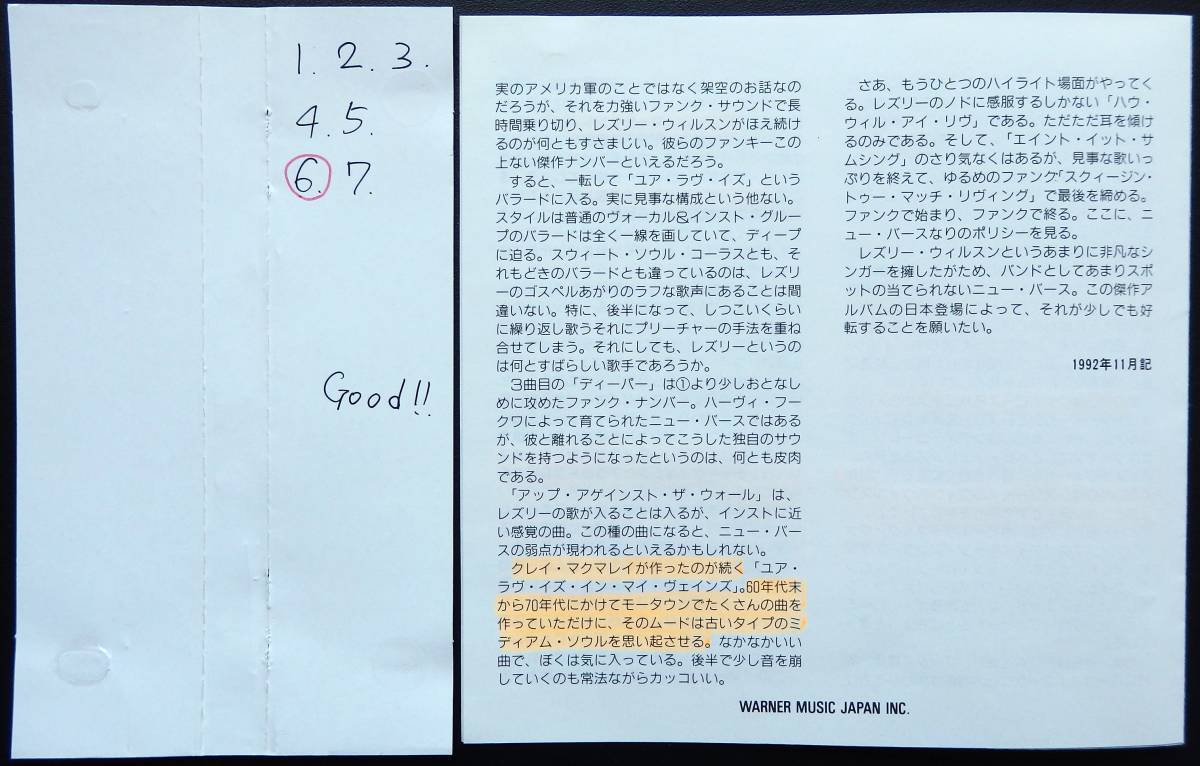 1. 2. 3.
4. 5.
6. 7.
Good!!
実のアメリカ軍のことではなく架空のお話なの
だろうが、それを力強いファンク・サウンドで長
時間乗り切り、レズリー・ウィルスンがほえ続け
るのが何ともすさまじい。彼らのファンキーこの
上ない傑作ナンバーといえるだろう。
すると、一転して「ユア・ラヴ・イズ」という
バラードに入る。実に見事な構成という他ない。
スタイルは普通のヴォーカル&インスト・グルー
プのバラードは全く一線を画していて、ディープ
に迫る。スウィート・ソウル・コーラスとも、そ
れもどきのバラードとも違っているのは、レズリ
ーのゴスペルあがりのラフな歌声にあることは間
違いない。特に、後半になって、しつこいくらい
に繰り返し歌うそれにプリーチャーの手法を重ね
合せてしまう。それにしても、レズリーというの
は何とすばらしい歌手であろうか。
3曲目の「ディーパー」は①より少しおとなし
めに攻めたファンク・ナンバー。ハーヴィ・フー
クワによって育てられたニュー・バースではある
が、彼と離れることによってこうした独自のサウ
ンドを持つようになったというのは、何とも皮肉
である。
「アップ・アゲインスト・ザ・ウォール」は、
レズリーの歌が入ることは入るが、インストに近
い感覚の曲。この種の曲になると、ニュー・バー
スの弱点が現われるといえるかもしれない。
クレイ・マクマレイが作ったのが続く「ユア・
ラヴ・イズ・イン・マイ・ヴェインズ」。60年代末
から70年代にかけてモータウンでたくさんの曲を
作っていただけに、そのムードは古いタイプのミ
ディアム・ソウルを思い起させる。なかなかいい
曲で、ぼくは気に入っている。後半で少し音を崩
していくのも常法ながらカッコいい。
さあ、もうひとつのハイライト場面がやってく
る。レズリーのノドに感服するしかない「ハウ・
ウィル・アイ・リヴ」である。ただただ耳を傾け
るのみである。そして、「エイント・イット・サ
ムシング」のさり気なくはあるが、見事な歌いっ
ぷりを終えて、ゆるめのファンク「スクィージン・
トゥー・マッチ・リヴィング」で最後を締める。
ファンクで始まり、ファンクで終る。ここに、ニ
ュー・バースなりのポリシーを見る。
レズリー・ウィルスンというあまりに非凡なシ
ンガーを擁したがため、バンドとしてあまりスポ
ットの当てられないニュー・バース。この傑作ア
ルバムの日本登場によって、それが少しでも好
転することを願いたい。
1992年11月記
WARNER MUSIC JAPAN INC.